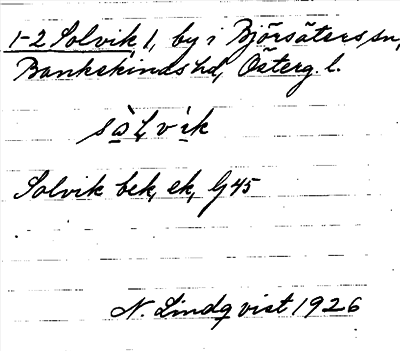 1-2 Solvik 1, by i Björsäters sn,
Bankekinds hd, Österg. l.
sòlvik
Solvik bek, ek, G 45
N. Lindqvist 1926